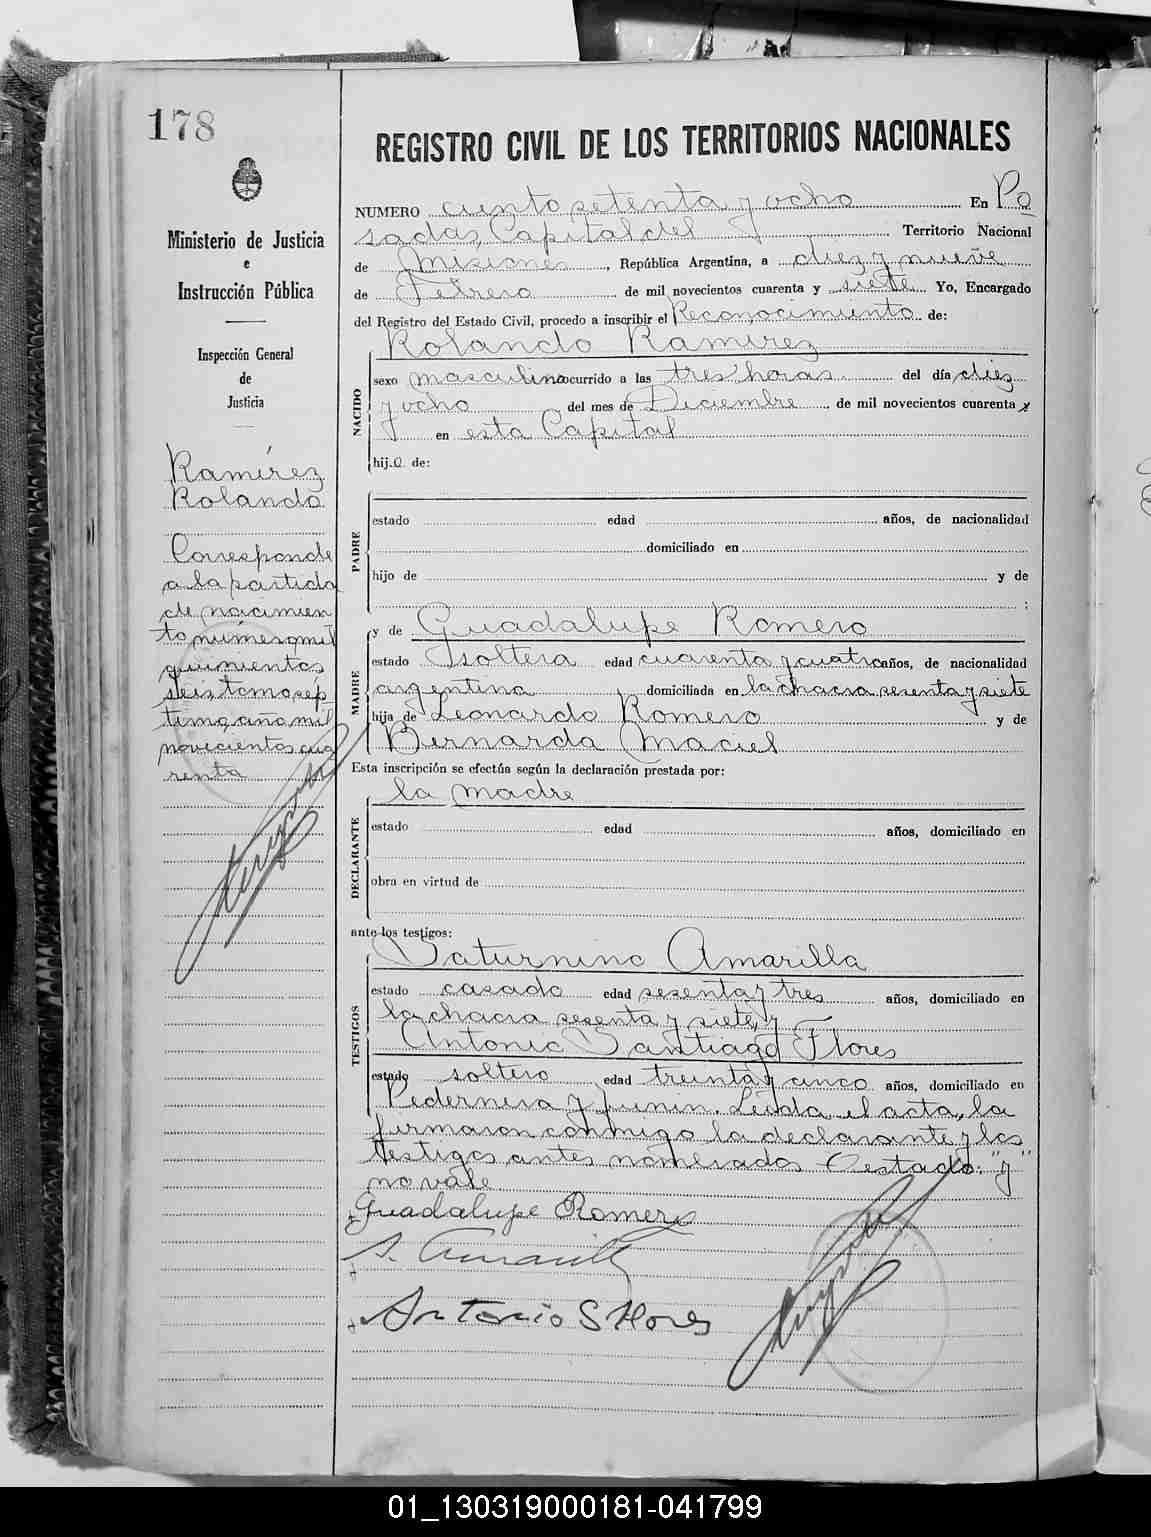 178
REGISTRO CIVIL DE LOS TERRITORIOS NACIONALES
Ministerio de Justicia
e
Instrucción Pública
Inspección General
de
Justicia
Ramírez
Rolando
Corresponde
a la partida
de nacimien
to número mil
quinientos
seis, tomo sép
timo, año mil
novecientos cua
renta
NUMERO cientosetenta y ocho En Po
sadas, Capital del Territorio Nacional
de Misiones, República Argentina, a diez y nueve
de Febrero de mil novecientos cuarenta y siete Yo, Encargado
del Registro del Estado Civil, procedo a inscribir el Reconocimiento de:
Rolando Ramirez
NACIDO
sexo masculino ocurrido a las tres horas del día diez
y ocho del mes de Diciembre de mil novecientos cuarenta y
en esta Capital
hij.o. de:
PADRE
estado edad años, de nacionalidad
domiciliado en
hijo de y de
;
y de Guadalupe Romero
MADRE
estado soltera edad cuarenta y cuatro años, de nacionalidad
argentina domiciliada en la chacra sesenta y siete
hija de Leonardo Romero y de
Bernarda Maciel
Esta inscripción se efectúa según la declaración prestada por:
la madre
DECLARANTE
estado edad años, domiciliado en
obra en virtud de
ante los testigos:
Saturnino Amarilla
TESTIGOS
estado casado edad sesenta y tres años, domiciliado en
la chacra sesenta y siete, y
Antonio Santiago Flores
estado soltero edad treinta y cinco años, domiciliado en
Pedernera y Junin. Leida el acta, la
firmaron conmigo la declarante y los
testigos antes nombrados Testado: "y"
no vale
Guadalupe Romero
S. Amarilla
Antonio S Flores
01_130319000181-041799